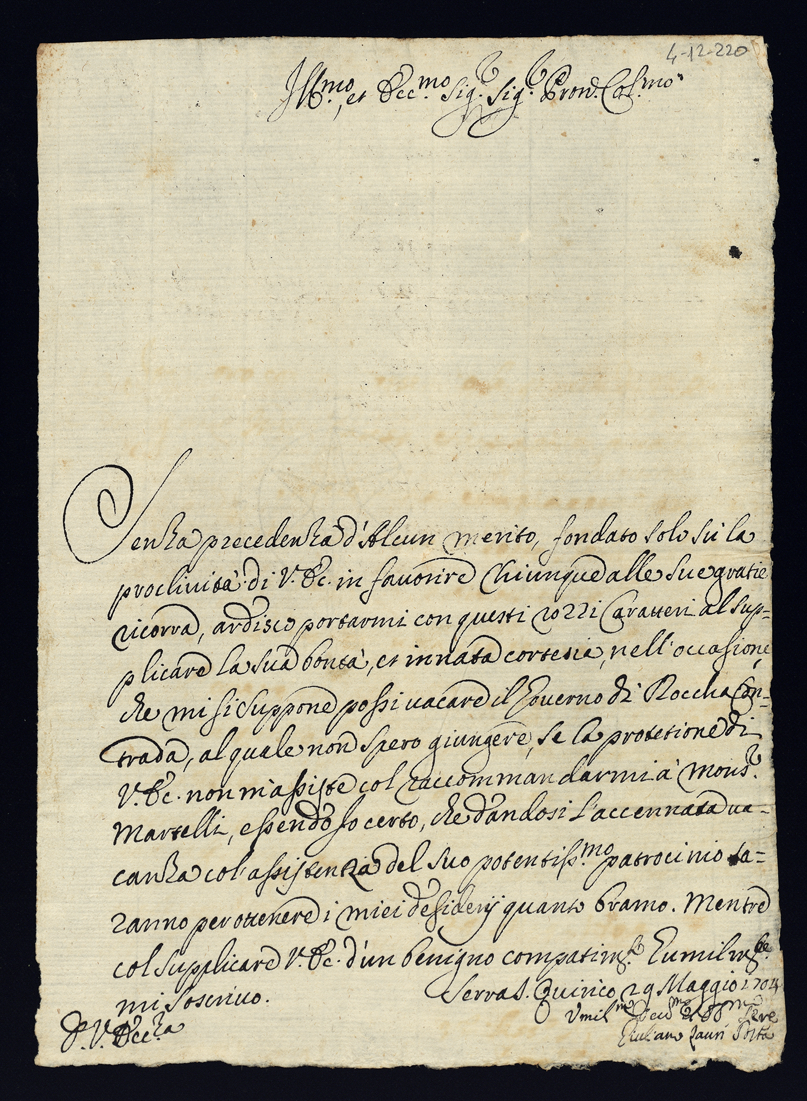 4-12-220
Ill.mo, et Ecc.mo Sig.r Sig.r Pron. Col.mo
Senza precedenza d'Alcun merito, fondato solo sù la
proclività di V. Ec. in favorire chiunque alle sue gratie
ricorra, ardisco portarmi con questi rozzi Caratteri al sup=
plicare la sua bontà, et innata cortesia, nell'occasione,
che mi si suppone possi vacare il Governo di Roccha Con=
trada, al quale non spero giungere, se la protetione di
V. Ec. non m'assiste col raccommandarmi à Mons.r
Martelli, essendo Io certo, che dandosi l'accennata va=
canza col'assistenza del suo potentiss.mo patrocinio sa=
ranno per ottenere i miei desiderij quanto bramo. Mentre
col supplicare V. Ec. d'un benigno compatim.to Et umilm.te
mi soscrivo.
Serra S. Quirico 29 Maggio 1704
D. V. Ecc.za
Umil.mo Dev.mo et Obb.mo Serre
Giuliano Lauri Porta